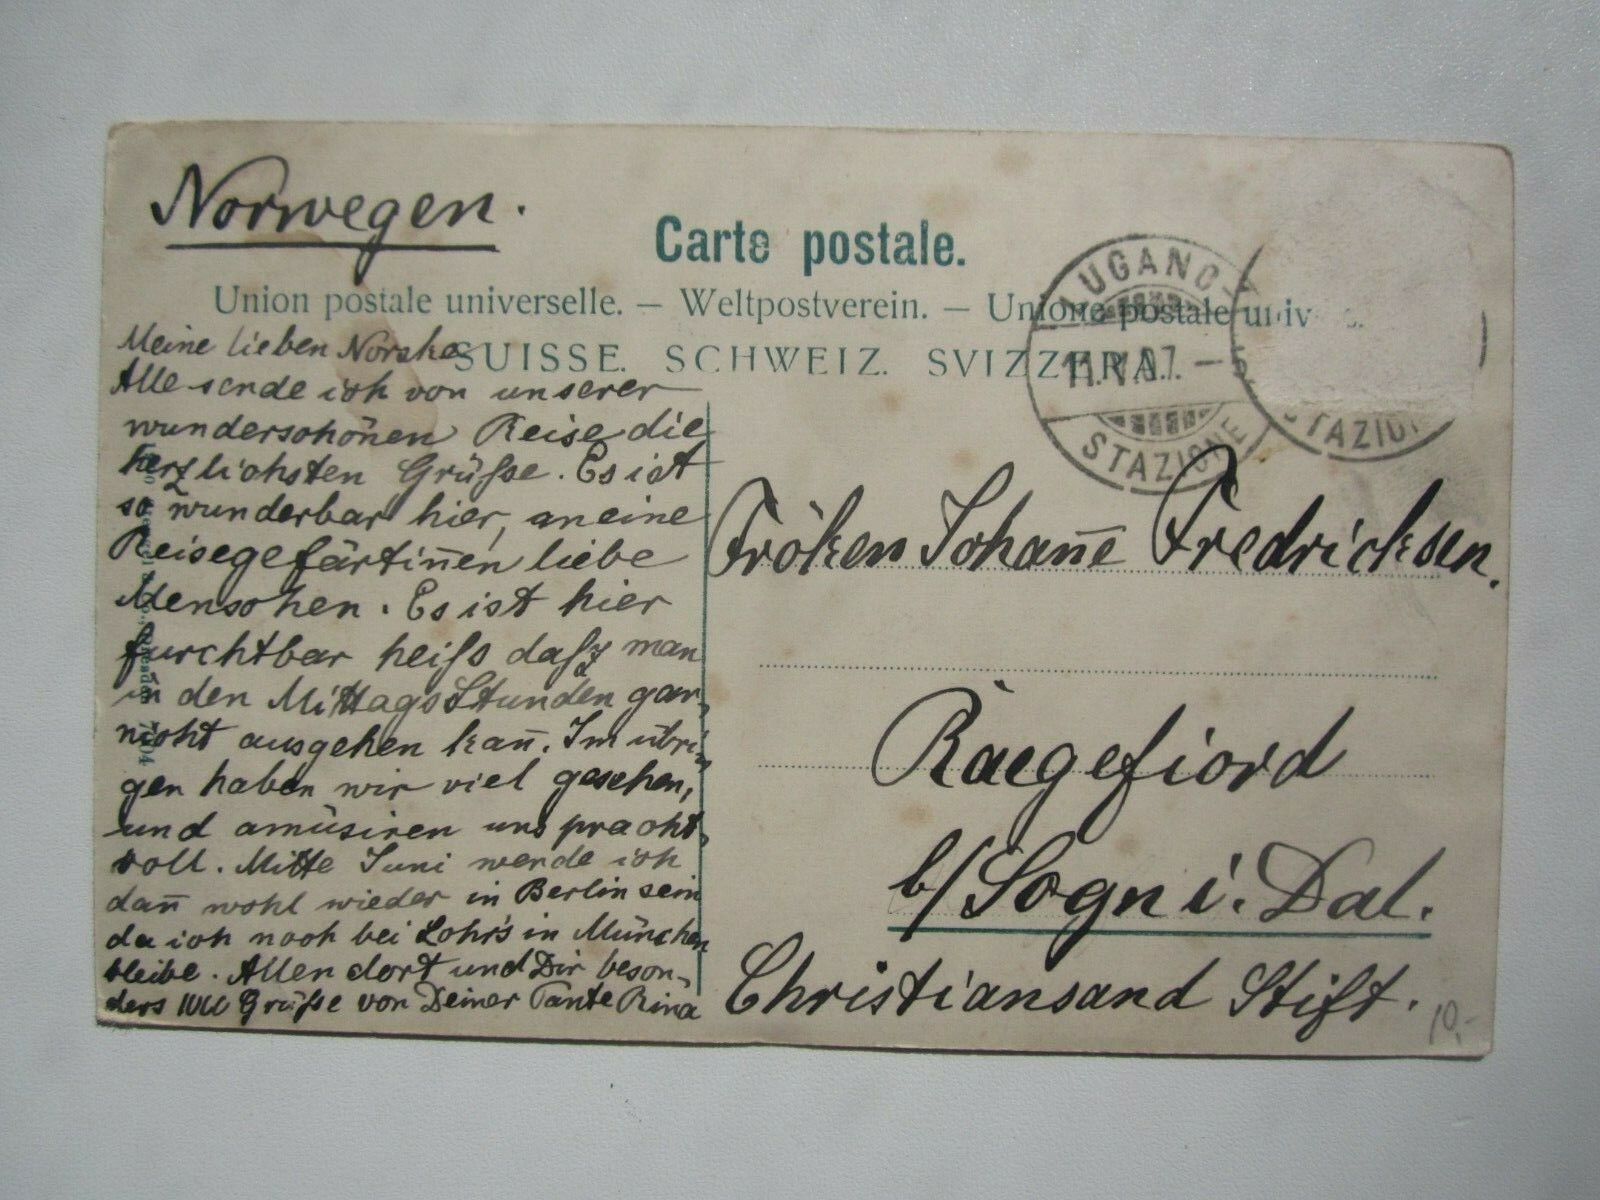 Norwegen.
Carte postale.
Union postale universelle. — Weltpostverein. — Unione postale univ
SUISSE. SCHWEIZ. SVIZZERA.
LUGANO
11.V.07. –
STAZIONE
STAZION
Meine lieben Norske
Alle sende ich von unserer
wunderschönen Reise die
herzlichsten Grüsse. Es ist
so wunderbar hier,
Reisegefärtin̅en liebe
Menschen. Es ist hier
furchtbar heiss dasz man
in den MittagsStunden gar,
nicht ausgehen kan̅. Im übri,
gen haben wir viel gesehen,
und amüsiren uns pracht,
voll. Mitte Juni werde ich
dan̅ wohl wieder in Berlin sein
da ich noch bei Lohr's in München
bleibe. Allen dort und Dir beson-
ders Grüsse von Deiner Tante Rina
Fröken Johan̅e Fredricksen.
Raegefiord
b/Sogn i. Dal.
Christiansand Stift.
10,-